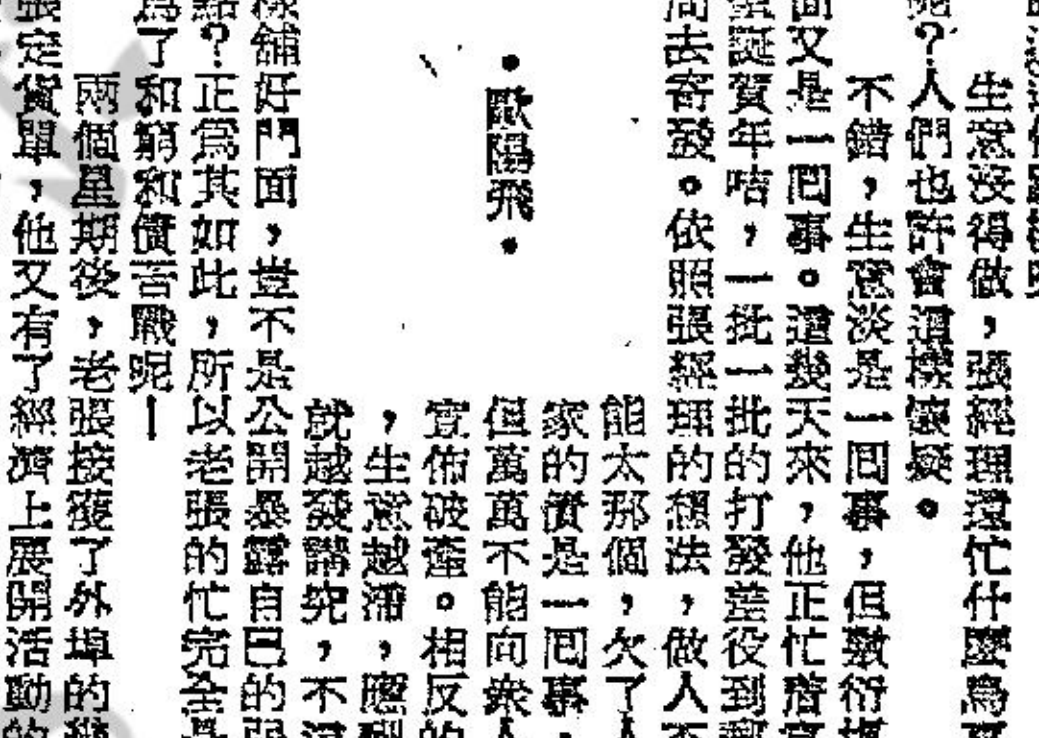 生意沒得做，張經理還忙什麼爲
？人們也許會這樣懷疑。
不錯，生意淡是一回事，但敷衍
面又是一回事。這幾天來，他正忙着
聖誕賀年咭，一批一批的打發差役到郵
去寄發。依照張經理的想法，做人不
能太那個，欠了人
家的債是一回事，
但萬萬不能向衆人
宣佈破產。相反的
，生意越滯，應酬
就越發講究，不
•歐陽飛•
樣舖好門面，豈不是公開暴露自己的弱
點？正爲其如此，所以老張的忙完全是
爲了和窮和債苦戰呢—
兩個星期後，老張接獲了外埠的幾
張定貨單，他又有了經濟上展開活動的